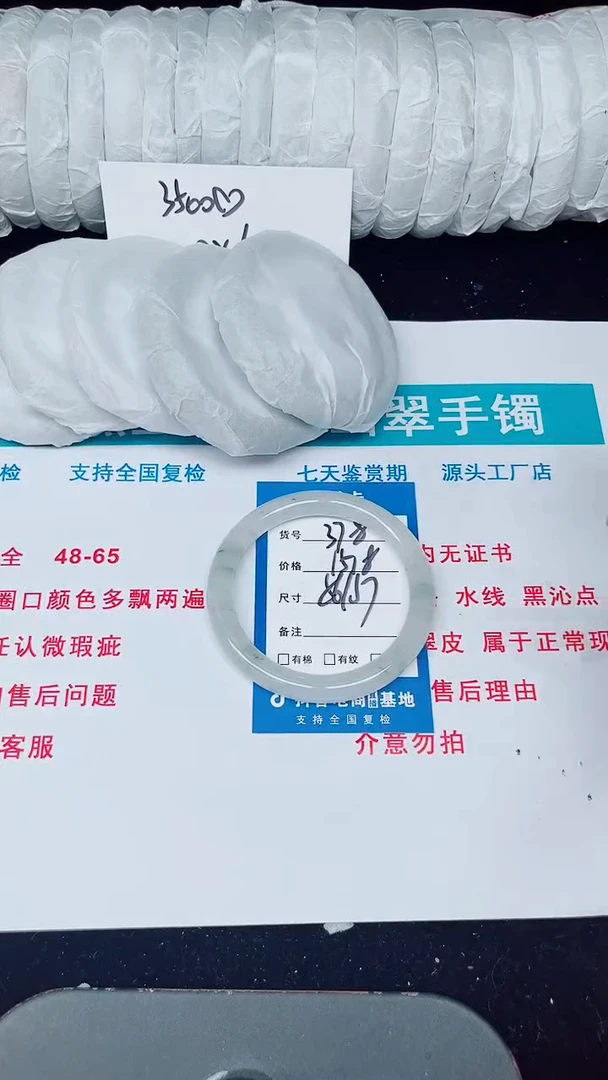 3500
翠手镯
检 支持全国复检 七天鉴赏期 源头工厂店
全 48-65
内无证书
圈口颜色多飘两遍
水线 黑沁点
任认微瑕疵
翠皮 属于正常现
售后问题
售后理由
客服
介意勿拍
点
货号
价格
尺寸
备注
有棉 有纹
抖音电商直播基地
支持全国复检